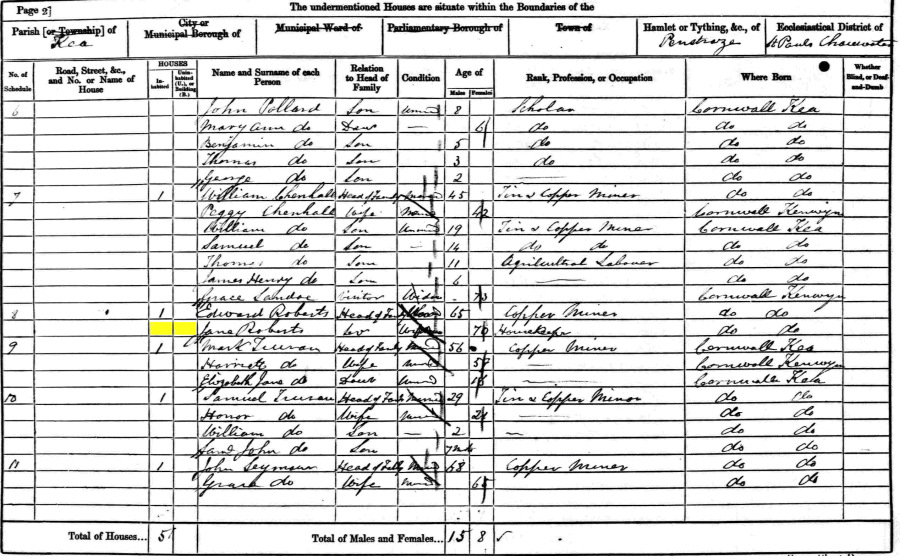 Page 2]
The undermentioned Houses are situate within the Boundaries of the
Parish [or Township] of City or Municipal Borough of Municipal Ward of Parliamentary Borough of Town of Hamlet or Tything, &c., of Ecclesiastical District of
Kea Penstraze St Pauls
No. of Schedule Road, Street, &c., and No. or Name of House HOUSES Inhabited Uninhabited (U.), or Building (B.) Name and Surname of each Person Relation to Head of Family Condition Age of Males Females Rank, Profession, or Occupation Where Born Whether Blind, or Deaf-and-Dumb
6 John Pollard Son Unm 8 Scholar Cornwall Kea
Mary Ann do Daur — 6 do do do
Benjamin do Son 5 do do do
Thomas do Son 3 do do do
George do Son 2 — do do
7 1 William Chenhall Head of Family 45 Tin & Copper Miner do do
Peggy Chenhall Wife 42 Cornwall Kenwyn
William do Son 19 Tin & Copper Miner Cornwall Kea
Samuel do Son — 14 do do do do
Thomas do Son 11 Agricultural Labourer do do
James Henry do Son 6 — do do
Grace Visitor Widow 73 Cornwall Kenwyn
8 1 Edward Roberts Head of 65 Copper Miner do do
Jane Roberts 70 Housekeeper do do
9 1 Mark Truran Head of Family 56 Copper Miner Cornwall Kea
Harriett do Wife — Cornwall Kenwyn
Elizabeth Jane do — Cornwall Kea
10 1 Samuel Truran Head of 29 Tin & Copper Minor do do
Honor do Wife 21 — do do
William do Son — 2 — do do
John do Son do do
11 1 John Seymour Head of 68 Copper Miner do do
Grace do Wife do do
Total of Houses... 5 Total of Males and Females... 15 8